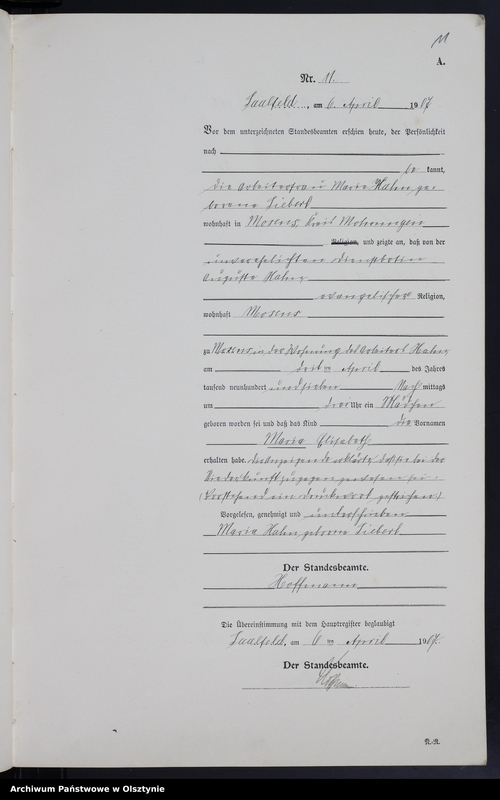 11
A.
Nr. 11.
Saalfeld, am 6. April 1907
Vor dem unterzeichneten Standesbeamten erschien heute, der Persönlichkeit
nach
be kannt,
die Arbeiterfrau Maria Hahn, ge-
borene Liebert
wohnhaft in Mosens, Kreis Mohrungen
Religion, und zeigte an, daß von der
unverehelichten Dienstbotin
Auguste Hahn,
evangelischer Religion,
wohnhaft Mosens
zu Mosens, in der Wohnung des Arbeiters Hahn,
am dritten April des Jahres
tausend neunhundert und sieben Nach mittags
um drei Uhr ein Mädchen
geboren worden sei und daß das Kind die Vornamen
Maria Elisabeth
erhalten habe. Die Anzeigende erklärte, daß sie bei der
Niederkunft zugegen gewesen sei.
(Vorstehend ein Druckwort gestrichen)
Vorgelesen, genehmigt und unterschrieben
Maria Hahn geborene Liebert
Der Standesbeamte.
Hoffmann
Die Übereinstimmung mit dem Hauptregister beglaubigt
Saalfeld, am 6 ten April 1907.
Der Standesbeamte.
N.-N.
Archiwum Państwowe w Olsztynie